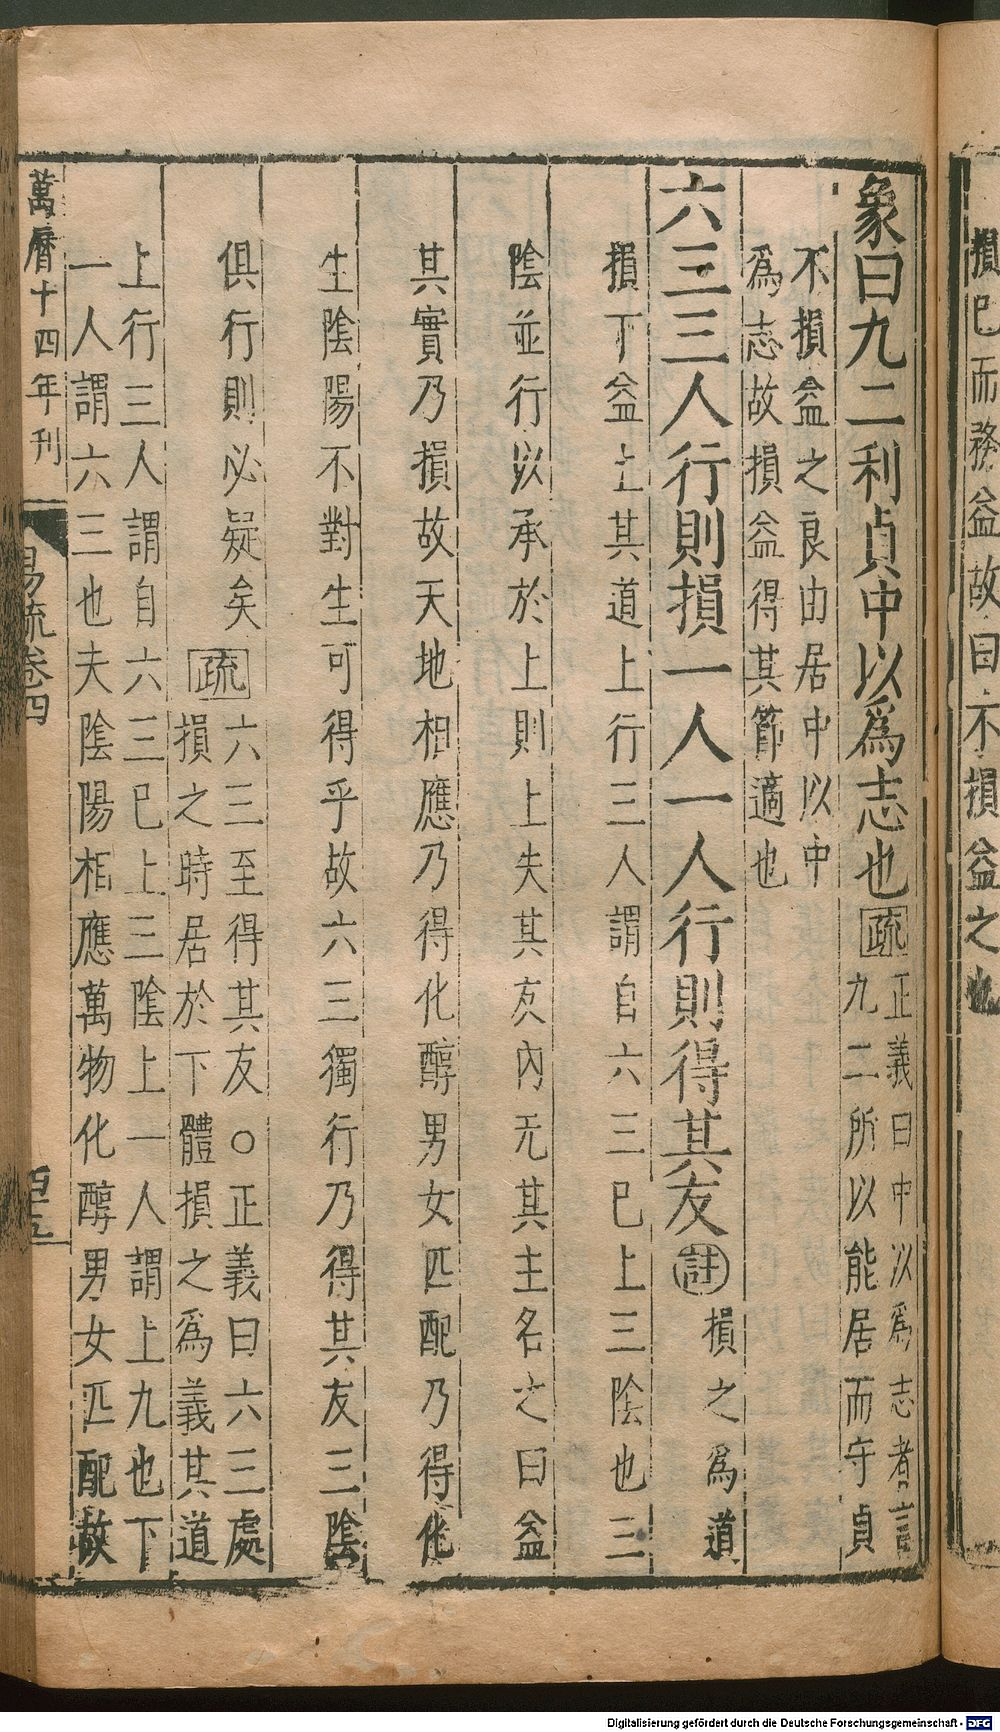 損已而務益故曰不損益之也
象曰九二利貞中以爲志也疏正義曰中以爲志者言
九二所以能居而守貞
不損益之良由居中以中
爲志故損益得其節適也
六三三人行則損一人一人行則得其友註損之爲道
損下益上其道上行三人謂自六三巳上三陰也三
陰並行以承於上則上失其友內无其主名之曰益
其實乃損故天地相應乃得化醇男女匹配乃得化
生陰陽不對生可得乎故六三獨行乃得其友三陰
俱行則必疑矣疏六三至得其友○正義曰六三處
損之時居於下體損之爲義其道
上行三人謂自六三巳上三陰上一人謂上九也下
一人謂六三也夫陰陽相應萬物化醇男女匹配故
萬曆十四年刊
易疏卷四
Digitalisierung gefördert durch die Deutsche Forschungsgemeinschaft - DFG